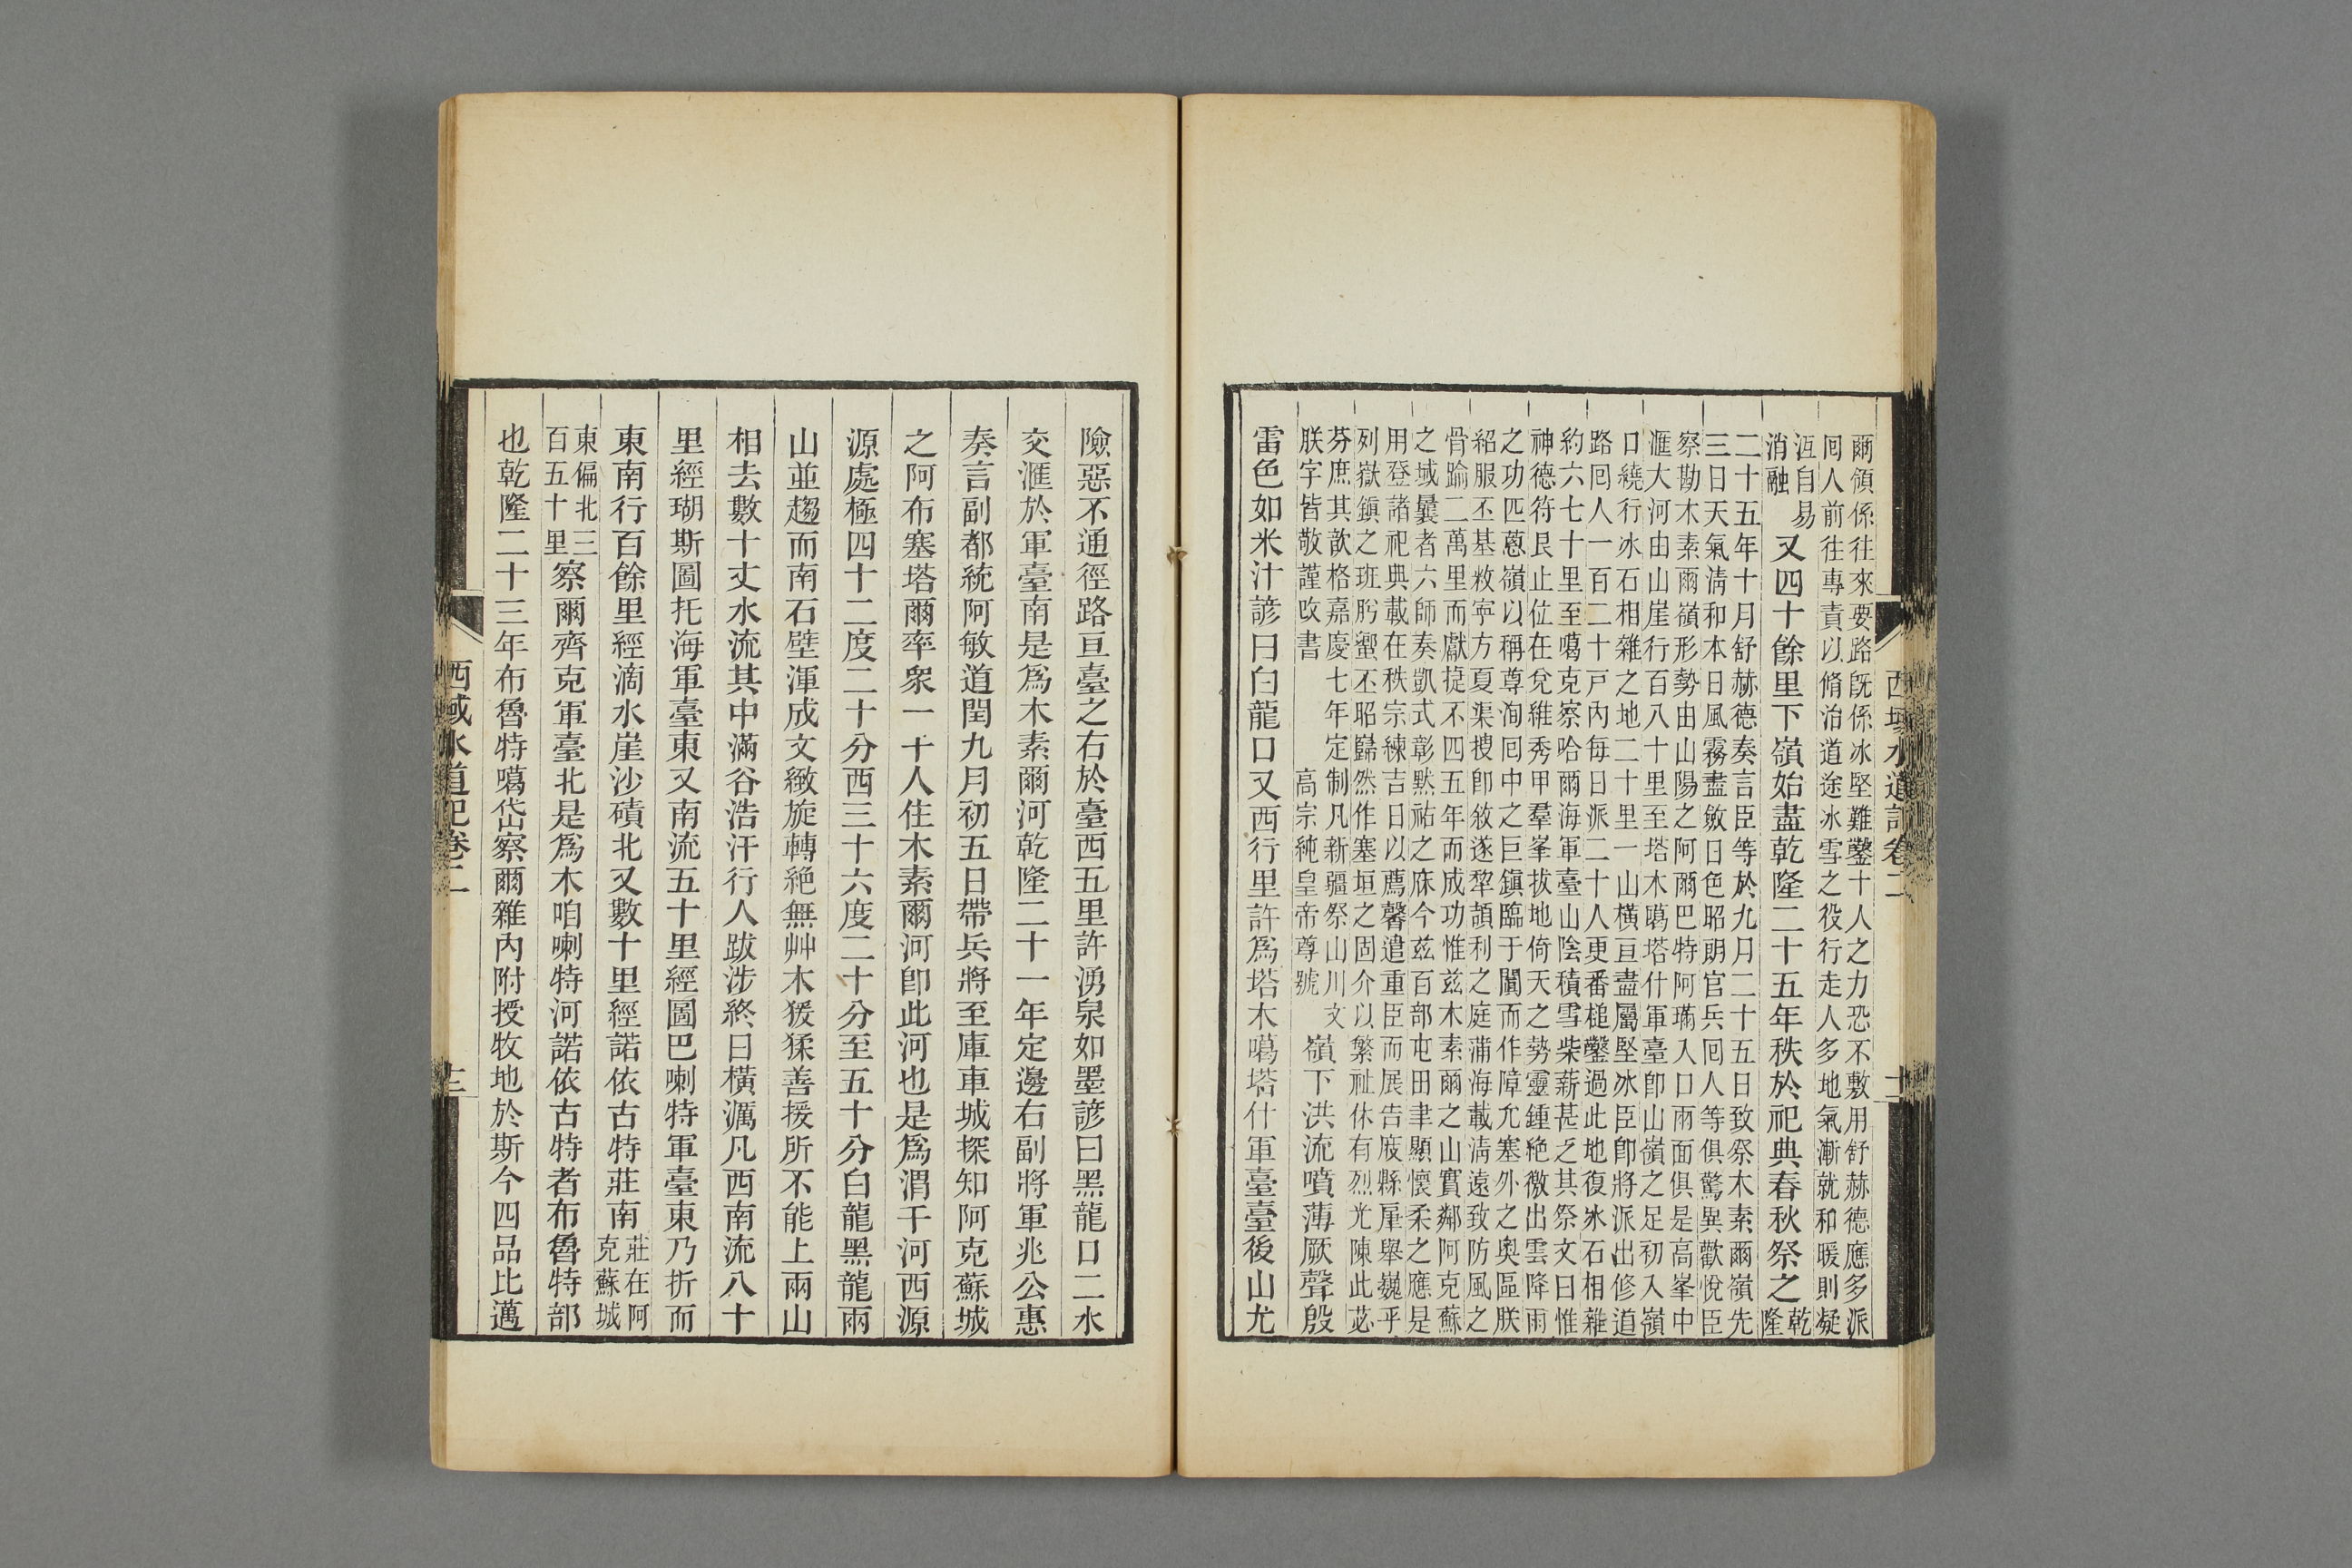 爾領係往來要路旣係冰堅難鑿十人之力恐不敷用舒赫德應多派
囘人前往專責以脩治道途冰雪之役行走人多地氣漸就和暖則凝
沍自易
消融
又四十餘里下嶺始盡乾隆二十五年秩於祀典春秋祭之
乾
隆
二十五年十月舒赫德奏言臣等於九月二十五日致祭木素爾嶺先
三日天氣淸和本日風霧盡斂日色昭朗官兵囘人等俱驚異歡悅臣
察勘木素爾嶺形勢由山陽之阿爾巴特阿璊入口雨面俱是高峯中
滙大河由山崖行百八十里至塔木噶塔什軍臺卽山嶺之足初入嶺
口繞行冰石相雜之地二十里一山橫亘盡屬堅冰臣卽將派出修道
路囘人一百二十戸內每日派二十人更番槌鑿過此地復冰石相雜
約六七十里至噶克察哈爾海軍臺山陰積雪柴薪甚乏其祭文曰惟
神德符艮止位在兌維秀甲羣峯拔地倚天之勢靈鍾絶徼出雲降雨
之功匹蔥嶺以稱尊洵囘中之巨鎭臨于闐而作障允塞外之奧區朕
紹服丕基敉寧方夏渠搜卽敘遂犂頡利之庭蒲海載淸遠致防風之
骨踰二萬里而獻㨗不四五年而成功惟兹木素爾之山實鄰阿克蘇
之域曩者六師奏凱式彰黙祐之庥今兹百部屯田聿顯懷柔之應是
用登諸祀典載在秩宗練吉日以薦馨遣重臣而展告庪縣肇舉巍乎
列嶽鎭之班肸蠁丕昭巋然作塞垣之固介以繁祉休有烈光陳此苾
芬庶其歆格嘉慶七年定制凡新疆祭山川文
朕字皆敬謹改書
高宗純皇帝尊號
嶺下洪流噴薄厥聲殷
雷色如米汁諺曰白龍口又西行里許爲塔木噶塔什軍臺臺後山尤
西域水道記卷二
十二
險惡不通徑路亘臺之右於臺西五里許湧泉如墨諺曰黑龍口二水
交滙於軍臺南是爲木素爾河乾隆二十一年定邊右副將軍兆公惠
奏言副都統阿敏道閏九月初五日帶兵將至庫車城探知阿克蘇城
之阿布塞塔爾率衆一千人住木素爾河卽此河也是爲渭干河西源
源處極四十二度二十分西三十六度二十分至五十分白龍黑龍兩
山並趨而南石壁渾成文緻旋轉絶無艸木猨猱善援所不能上兩山
相去數十丈水流其中滿谷浩汗行人跋涉終日橫濿凡西南流八十
里經瑚斯圖托海軍臺東又南流五十里經圖巴喇特軍臺東乃折而
東南行百餘里經滴水崖沙磧北又數十里經諾依古特莊南
莊在阿
克蘇城
東偏北三
百五十里
察爾齊克軍臺北是爲木咱喇特河諾依古特者布魯特部
也乾隆二十三年布魯特噶岱察爾雜內附授牧地於斯今四品比邁
西域水道記卷二